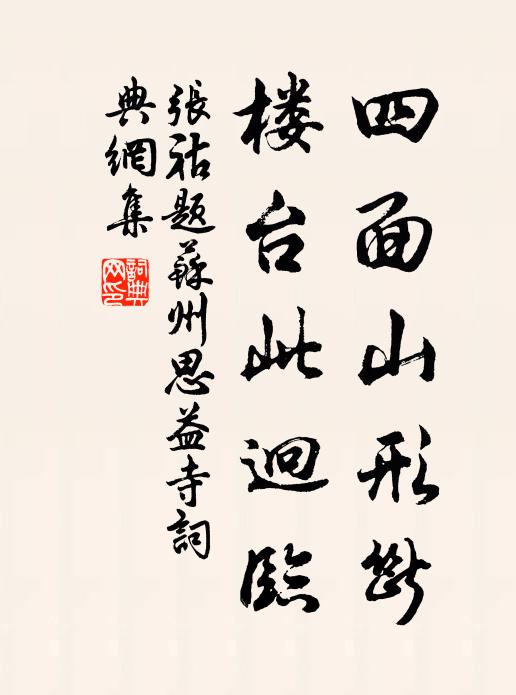 四面山形斷
楼台此迥臨
張祜題蘇州思益寺詞
典網集
詞典
网印